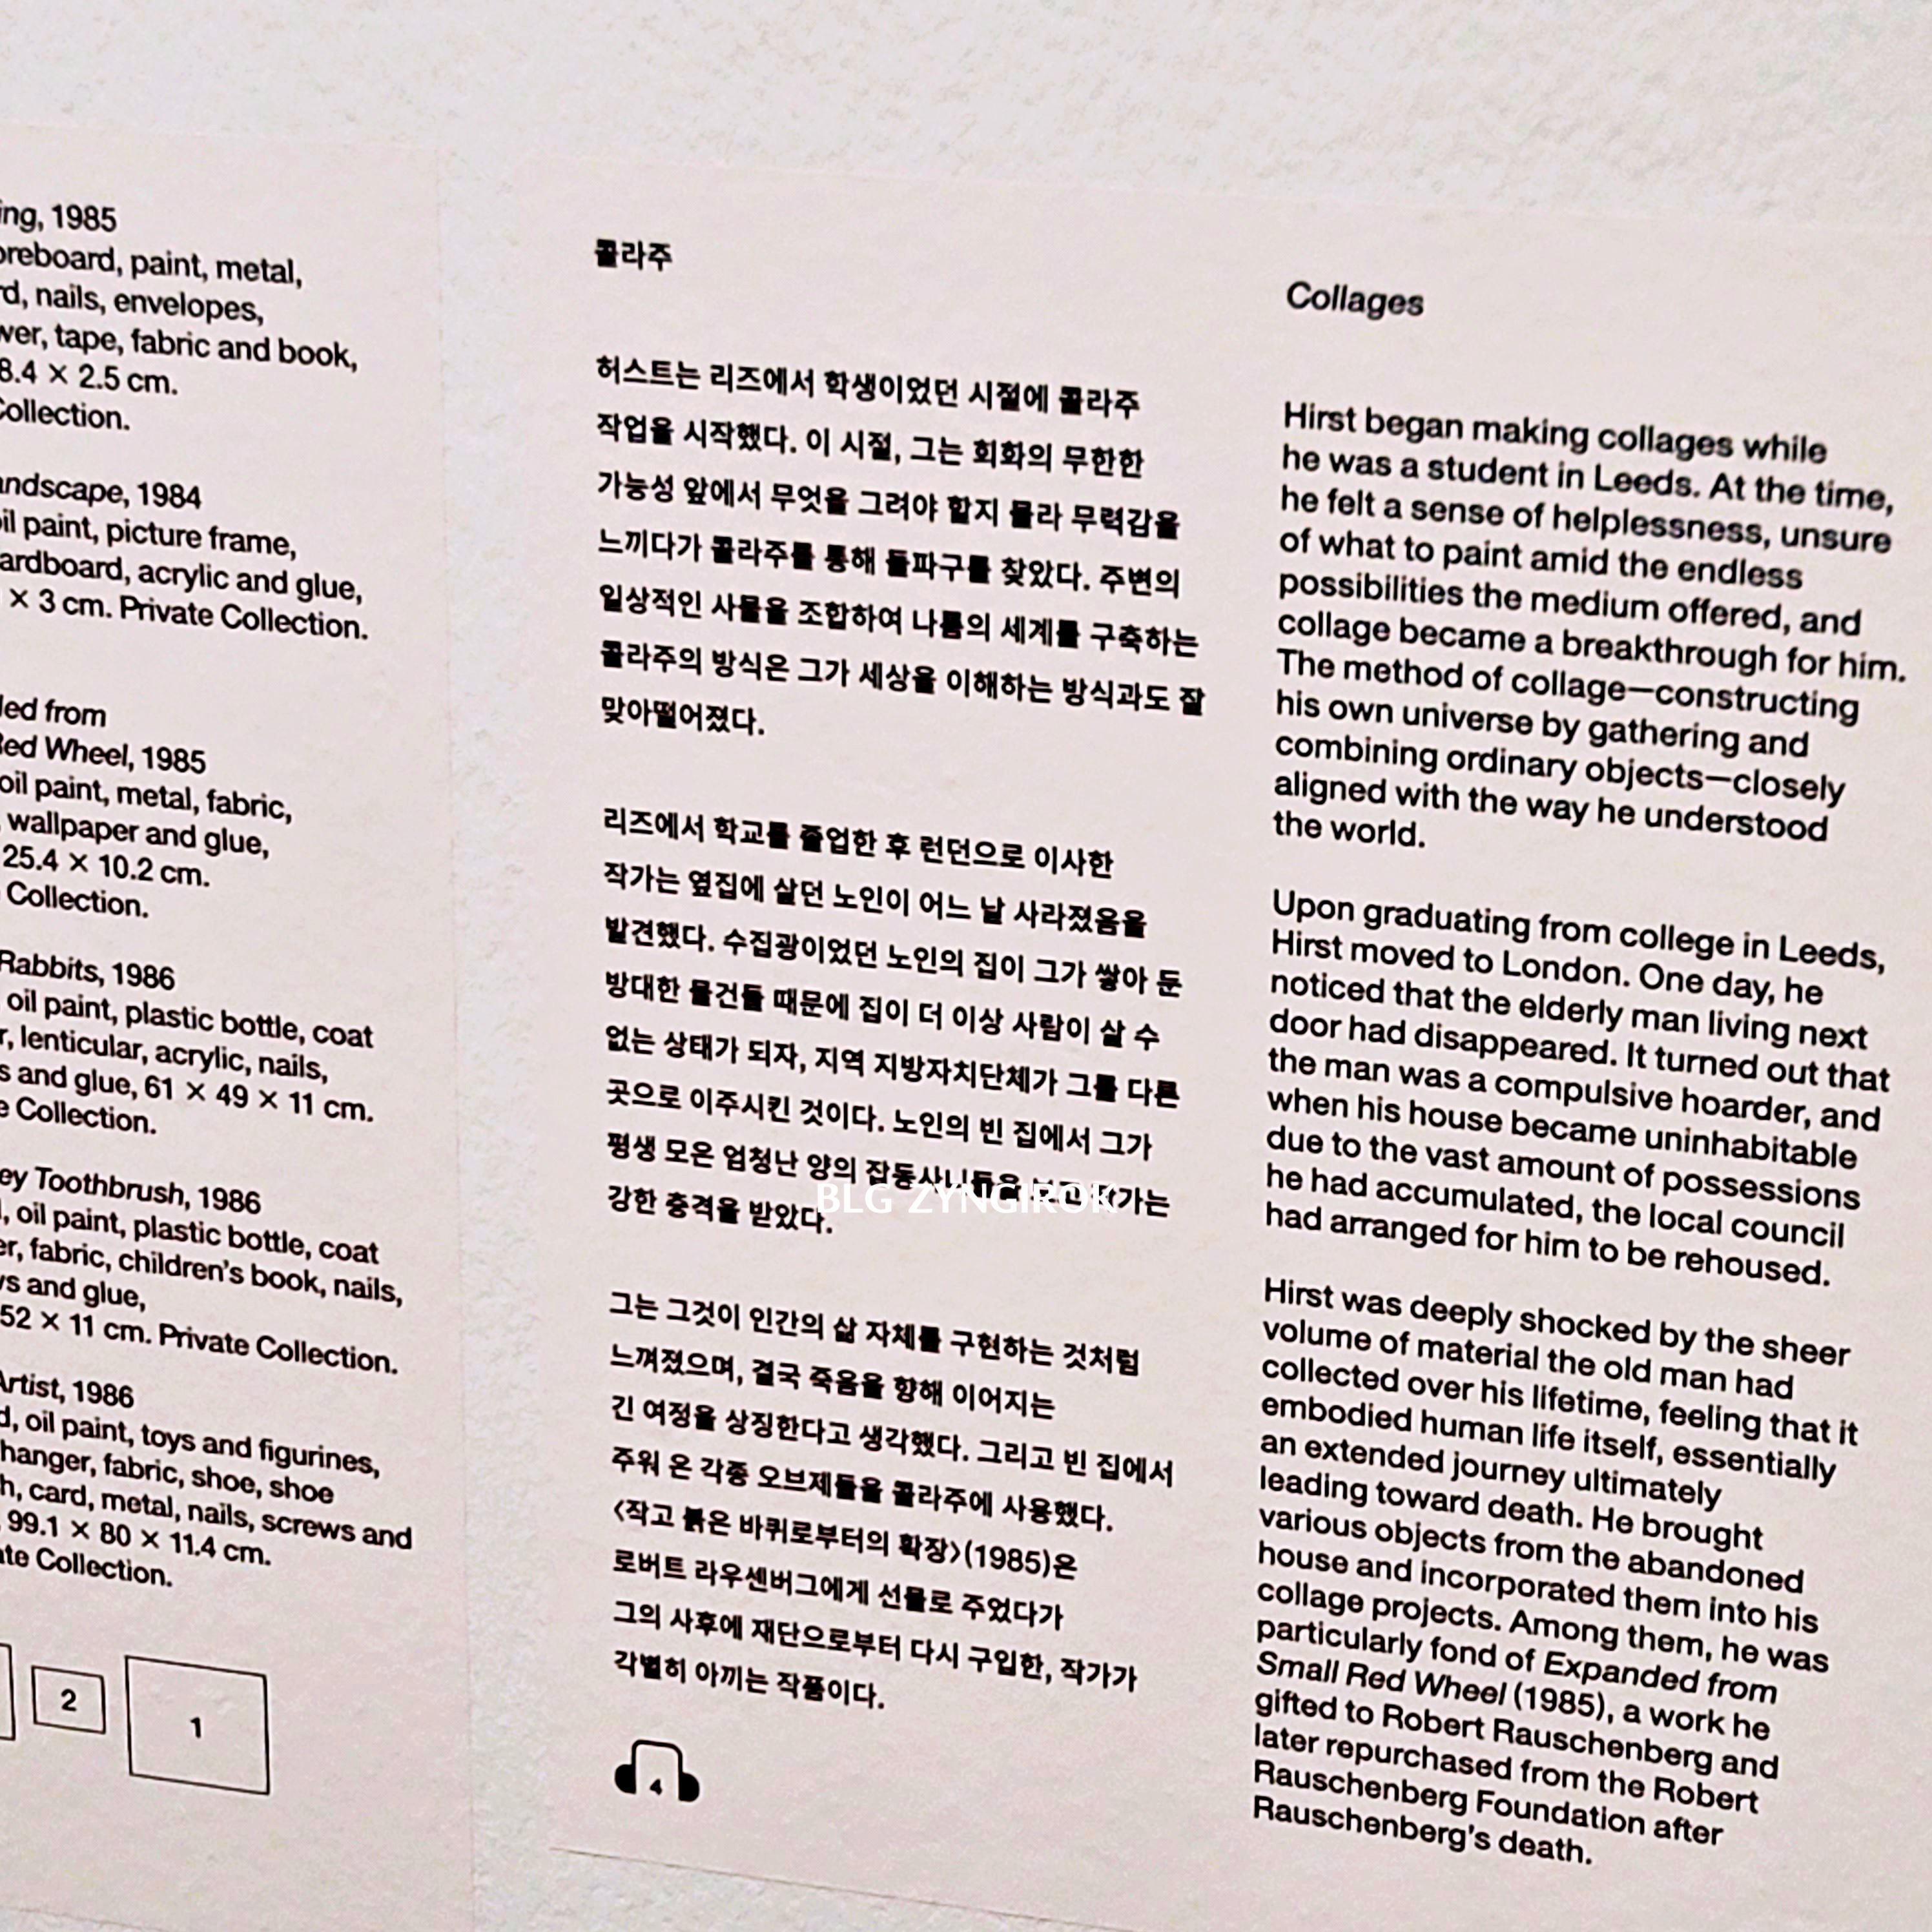 1985
paint, metal,
nails, envelopes,
tape, fabric and book,
× 2.5 cm.
Collection.
1984
paint, picture frame,
acrylic and glue,
× 3 cm. Private Collection.
from
Red Wheel, 1985
oil paint, metal, fabric,
wallpaper and glue,
25.4 × 10.2 cm.
Collection.
Rabbits, 1986
oil paint, plastic bottle, coat
lenticular, acrylic, nails,
and glue, 61 × 49 × 11 cm.
Collection.
Toothbrush, 1986
oil paint, plastic bottle, coat
fabric, children's book, nails,
and glue,
52 × 11 cm. Private Collection.
Artist, 1986
oil paint, toys and figurines,
hanger, fabric, shoe, shoe
card, metal, nails, screws and
99.1 × 80 × 11.4 cm.
Collection.
2
1
콜라주
허스트는 리즈에서 학생이었던 시절에 콜라주
작업을 시작했다. 이 시절, 그는 회화의 무한한
가능성 앞에서 무엇을 그려야 할지 몰라 무력감을
느끼다가 콜라주를 통해 돌파구를 찾았다. 주변의
일상적인 사물을 조합하여 나름의 세계를 구축하는
콜라주의 방식은 그가 세상을 이해하는 방식과도 잘
맞아떨어졌다.
리즈에서 학교를 졸업한 후 런던으로 이사한
작가는 옆집에 살던 노인이 어느 날 사라졌음을
발견했다. 수집광이었던 노인의 집이 그가 쌓아 둔
방대한 물건들 때문에 집이 더 이상 사람이 살 수
없는 상태가 되자, 지역 지방자치단체가 그를 다른
곳으로 이주시킨 것이다. 노인의 빈 집에서 그가
평생 모은 엄청난 양의 잡동사니들을
강한 충격을 받았다.
BLG ZYNGIROK
그는 그것이 인간의 삶 자체를 구현하는 것처럼
느껴졌으며, 결국 죽음을 향해 이어지는
긴 여정을 상징한다고 생각했다. 그리고 빈 집에서
주워 온 각종 오브제들을 콜라주에 사용했다.
〈작고 붉은 바퀴로부터의 확장〉(1985)은
로버트 라우센버그에게 선물로 주었다가
그의 사후에 재단으로부터 다시 구입한, 작가가
각별히 아끼는 작품이다.
4
Collages
Hirst began making collages while
he was a student in Leeds. At the time,
he felt a sense of helplessness, unsure
of what to paint amid the endless
possibilities the medium offered, and
collage became a breakthrough for him.
The method of collage—constructing
his own universe by gathering and
combining ordinary objects—closely
aligned with the way he understood
the world.
Upon graduating from college in Leeds,
Hirst moved to London. One day, he
noticed that the elderly man living next
door had disappeared. It turned out that
the man was a compulsive hoarder, and
when his house became uninhabitable
due to the vast amount of possessions
he had accumulated, the local council
had arranged for him to be rehoused.
Hirst was deeply shocked by the sheer
volume of material the old man had
collected over his lifetime, feeling that it
embodied human life itself, essentially
an extended journey ultimately
leading toward death. He brought
various objects from the abandoned
house and incorporated them into his
collage projects. Among them, he was
particularly fond of Expanded from
Small Red Wheel (1985), a work he
gifted to Robert Rauschenberg and
later repurchased from the Robert
Rauschenberg Foundation after
Rauschenberg's death.